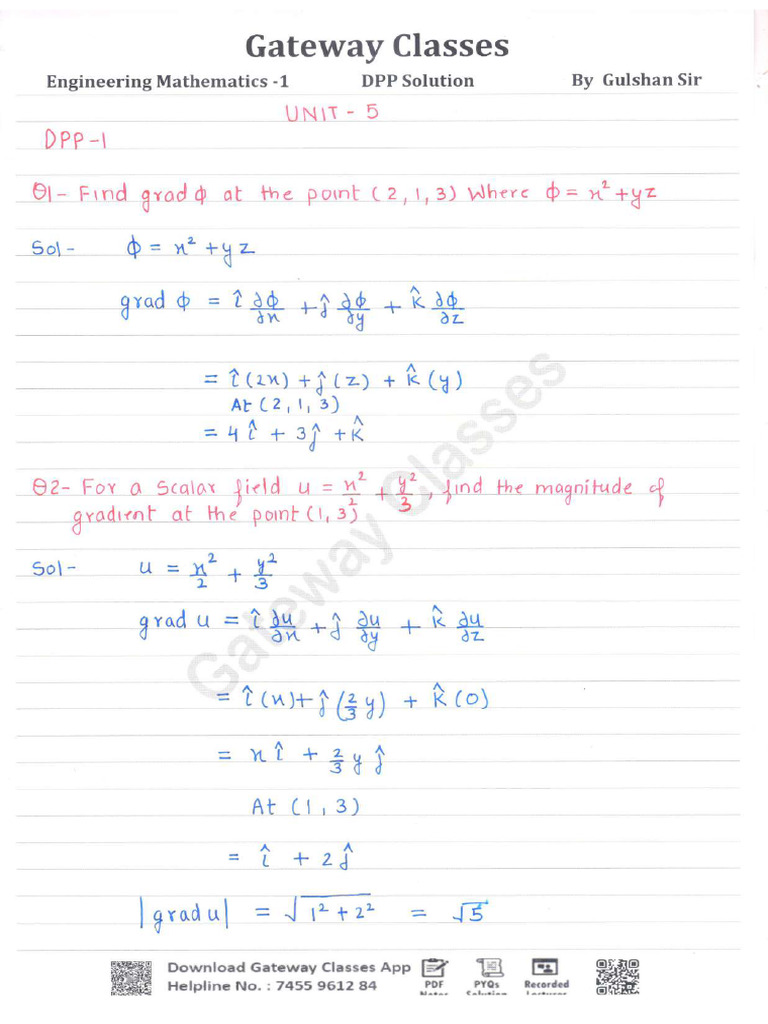 Gateway Classes
Engineering Mathematics -1 DPP Solution By Gulshan Sir
UNIT - 5
DPP-1
Q1- Find grad ϕ at the point (2,1,3) Where ϕ = x² + yz
Sol- ϕ = x² + yz
grad ϕ = î ∂ϕ/∂x + ĵ ∂ϕ/∂y + k̂ ∂ϕ/∂z
= î(2x) + ĵ(z) + k̂(y)
At (2,1,3)
= 4î + 3ĵ + k̂
Q2- For a Scalar field u = x²/2 + y²/3, find the magnitude of
gradient at the point (1,3)
Sol- u = x²/2 + y²/3
grad u = î ∂u/∂x + ĵ ∂u/∂y + k̂ ∂u/∂z
= î(x) + ĵ(2/3 y) + k̂(0)
= xî + 2/3 yĵ
At (1,3)
= î + 2ĵ
|grad u| = √(1² + 2²) = √5
Gateway Classes
Download Gateway Classes App
Helpline No. : 7455 9612 84
PDF Notes
PYQs Solution
Recorded Lectures